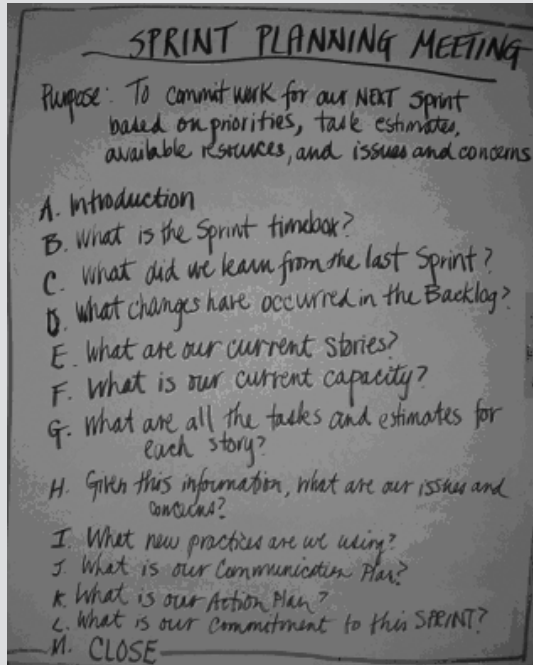 SPRINT PLANNING MEETING
Purpose: To commit work for our NEXT Sprint
based on priorities, task estimates,
available resources, and issues and concerns
A. Introduction
B. What is the Sprint timebox?
C. What did we learn from the last Sprint?
D. What changes have occurred in the Backlog?
E. What are our current stories?
F. What is our current capacity?
G. What are all the tasks and estimates for
each story?
H. Given this information, what are our issues and
concerns?
I. What new practices are we using?
J. What is our Communication Plan?
K. What is our Action Plan?
L. What is our Commitment to this SPRINT?
M. CLOSE